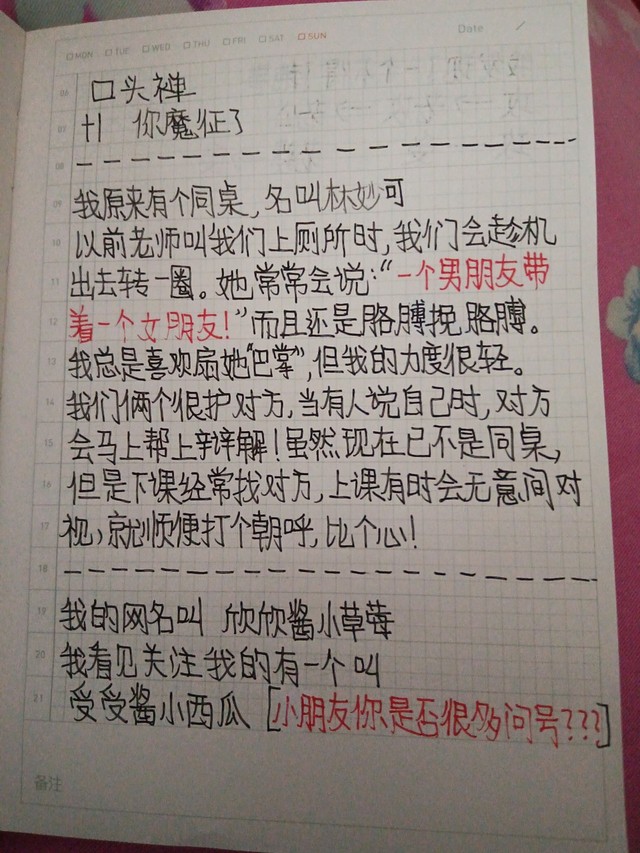 MON TUE WED THU FRI SAT SUN Date /
口头禅
H 你魔征了
我原来有个同桌,名叫林妙可
以前老师叫我们上厕所时,我们会趁机
出去转一圈。她常常会说:“一个男朋友带
着一个女朋友!”而且还是胳膊挽胳膊。
我总是喜欢扇她“巴掌”,但我的力度很轻。
我们俩个很护对方,当有人说自己时,对方
会马上帮上辩解!虽然现在已不是同桌,
但是下课经常找对方,上课有时会无意间对
视,就顺便打个朝呼,比个心!
我的网名叫 欣欣酱小草莓
我看见关注我的有一个叫
受受酱小西瓜[小朋友你是否很多问号???]
备注